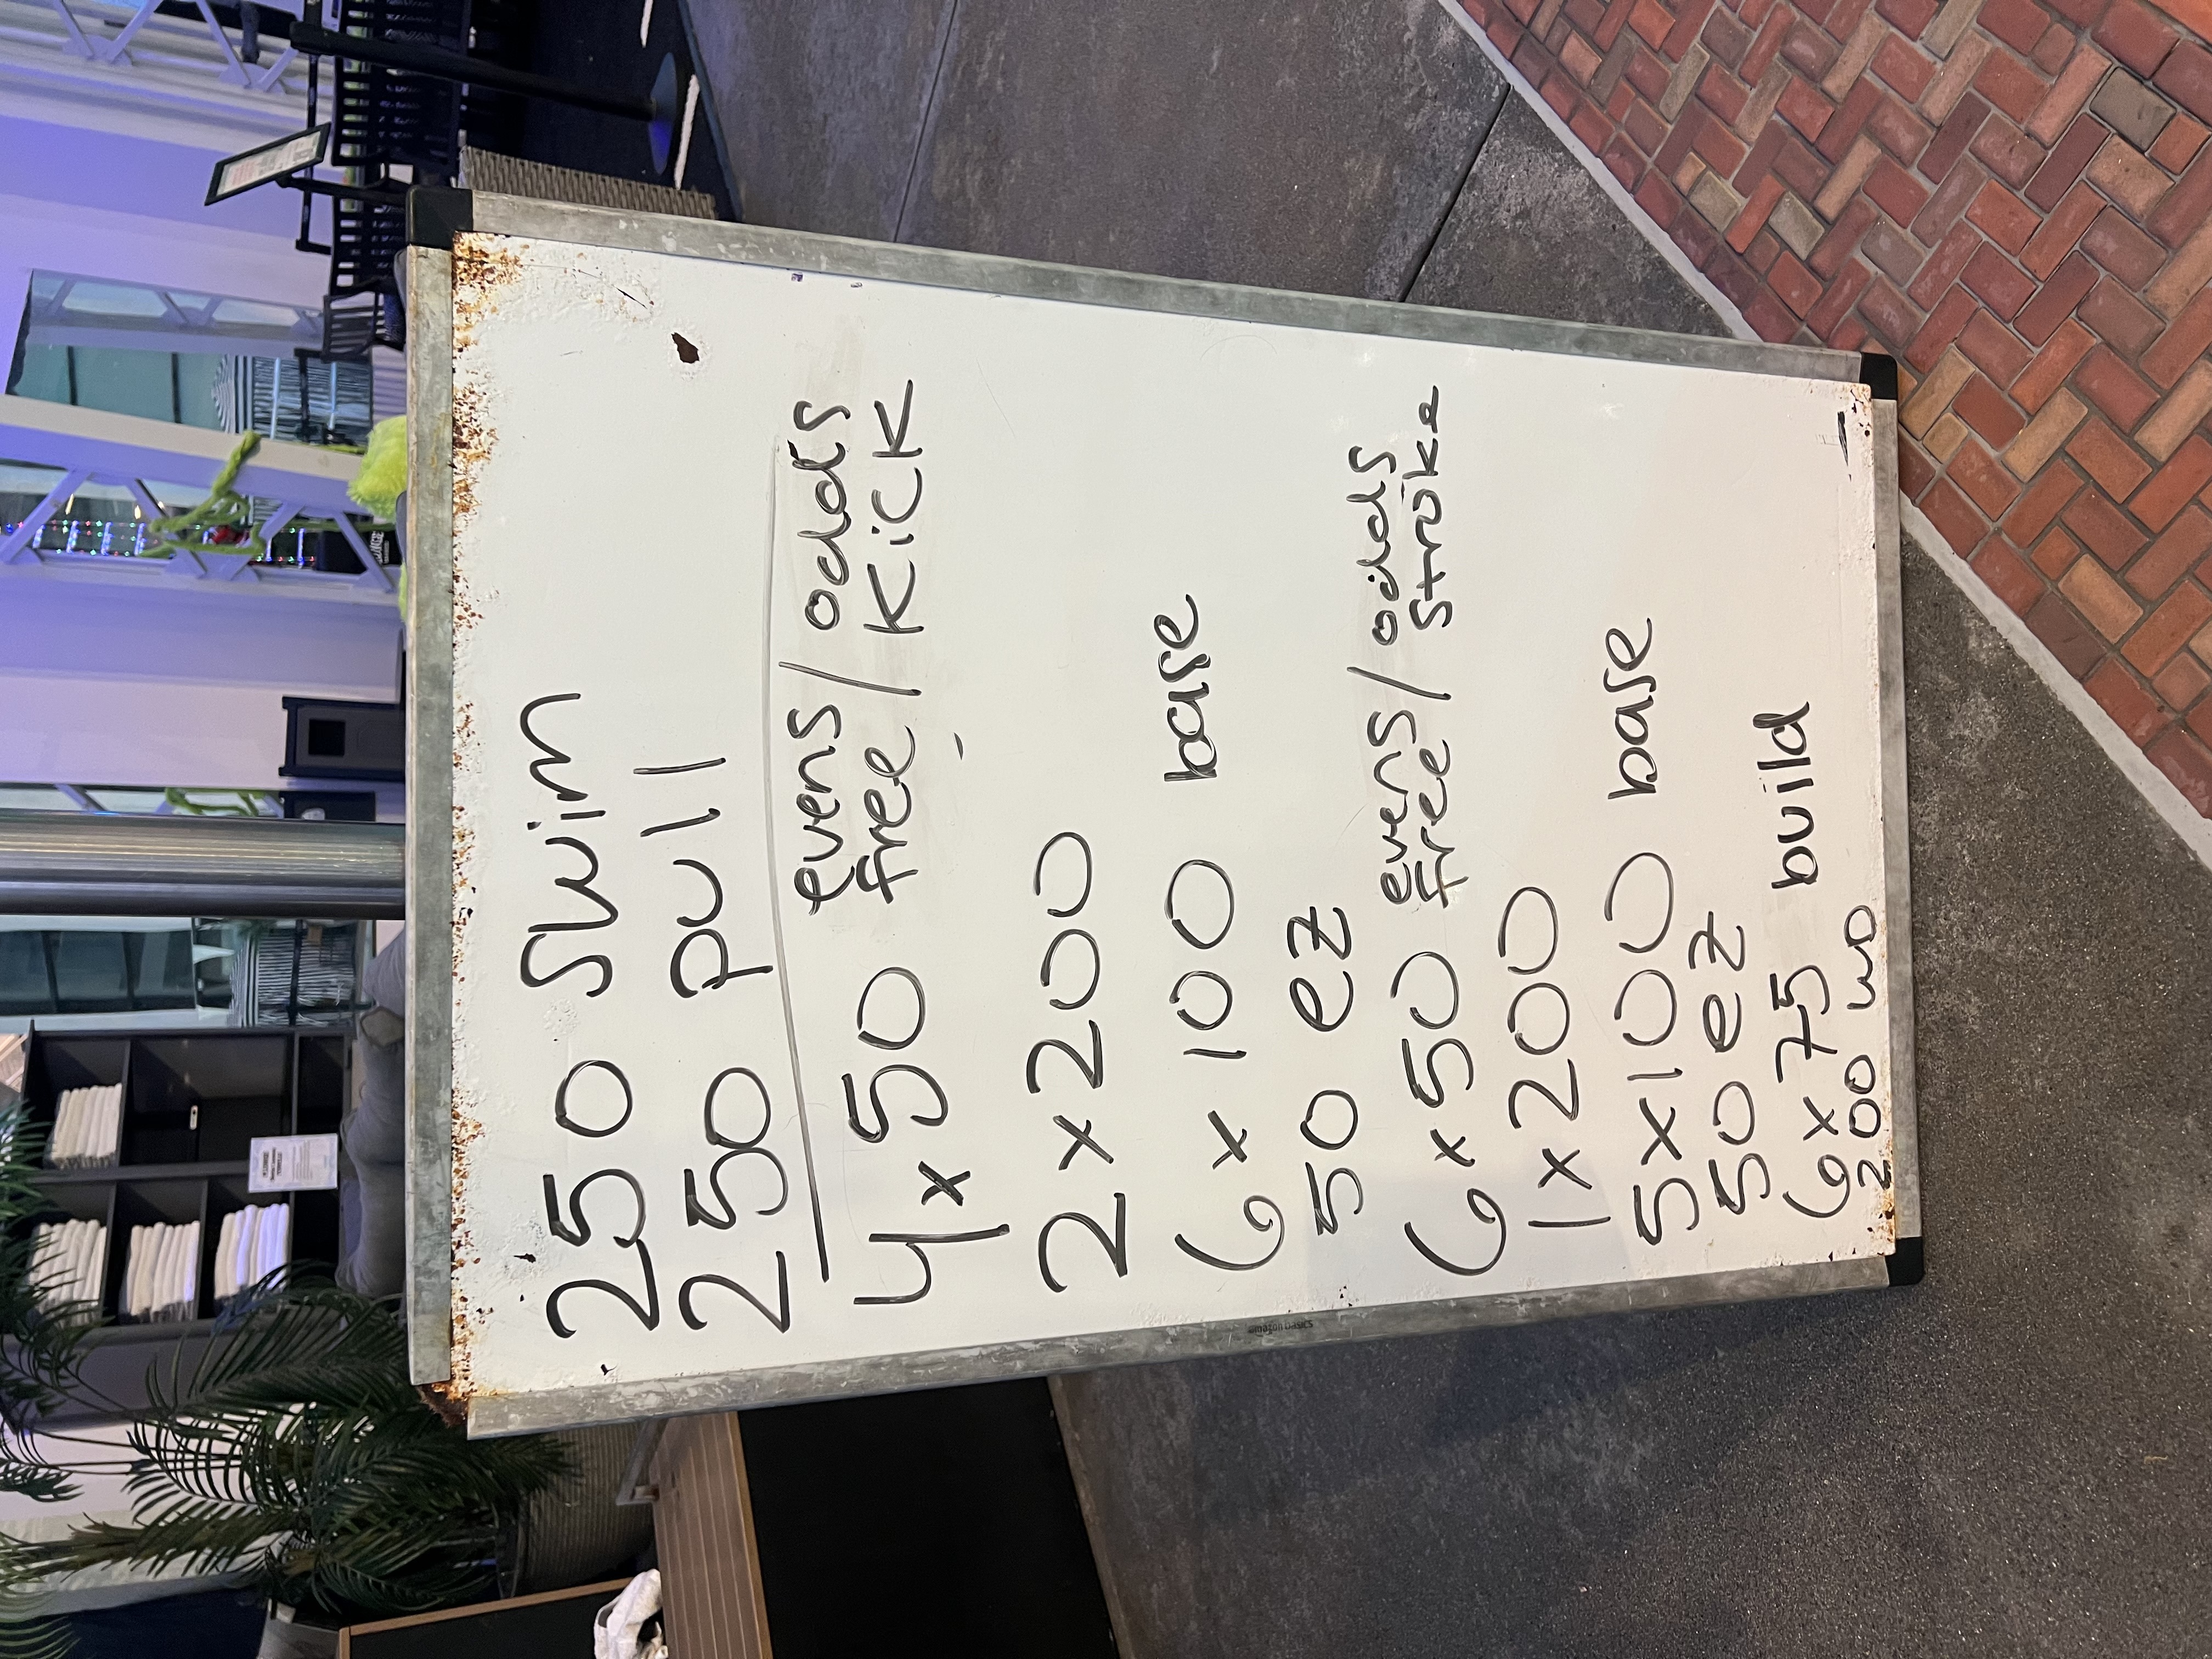 250 Swim
250 pull
4 x 50 evens / odds
free / Kick
2 x 200
6 x 100 base
50 ez
6 x 50 evens / odds
free / Stroke
1 x 200
5 x 100 base
50 ez
6 x 75 build
200 WD
amazon basics